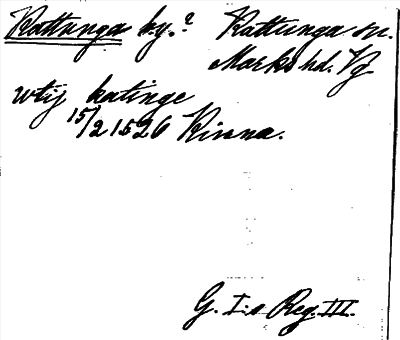 Kattunga by.? Kattunga sn.
Marks hd. Vg
wtij katinge
15/2 1526 Kinna.
G. I:s Reg. III.